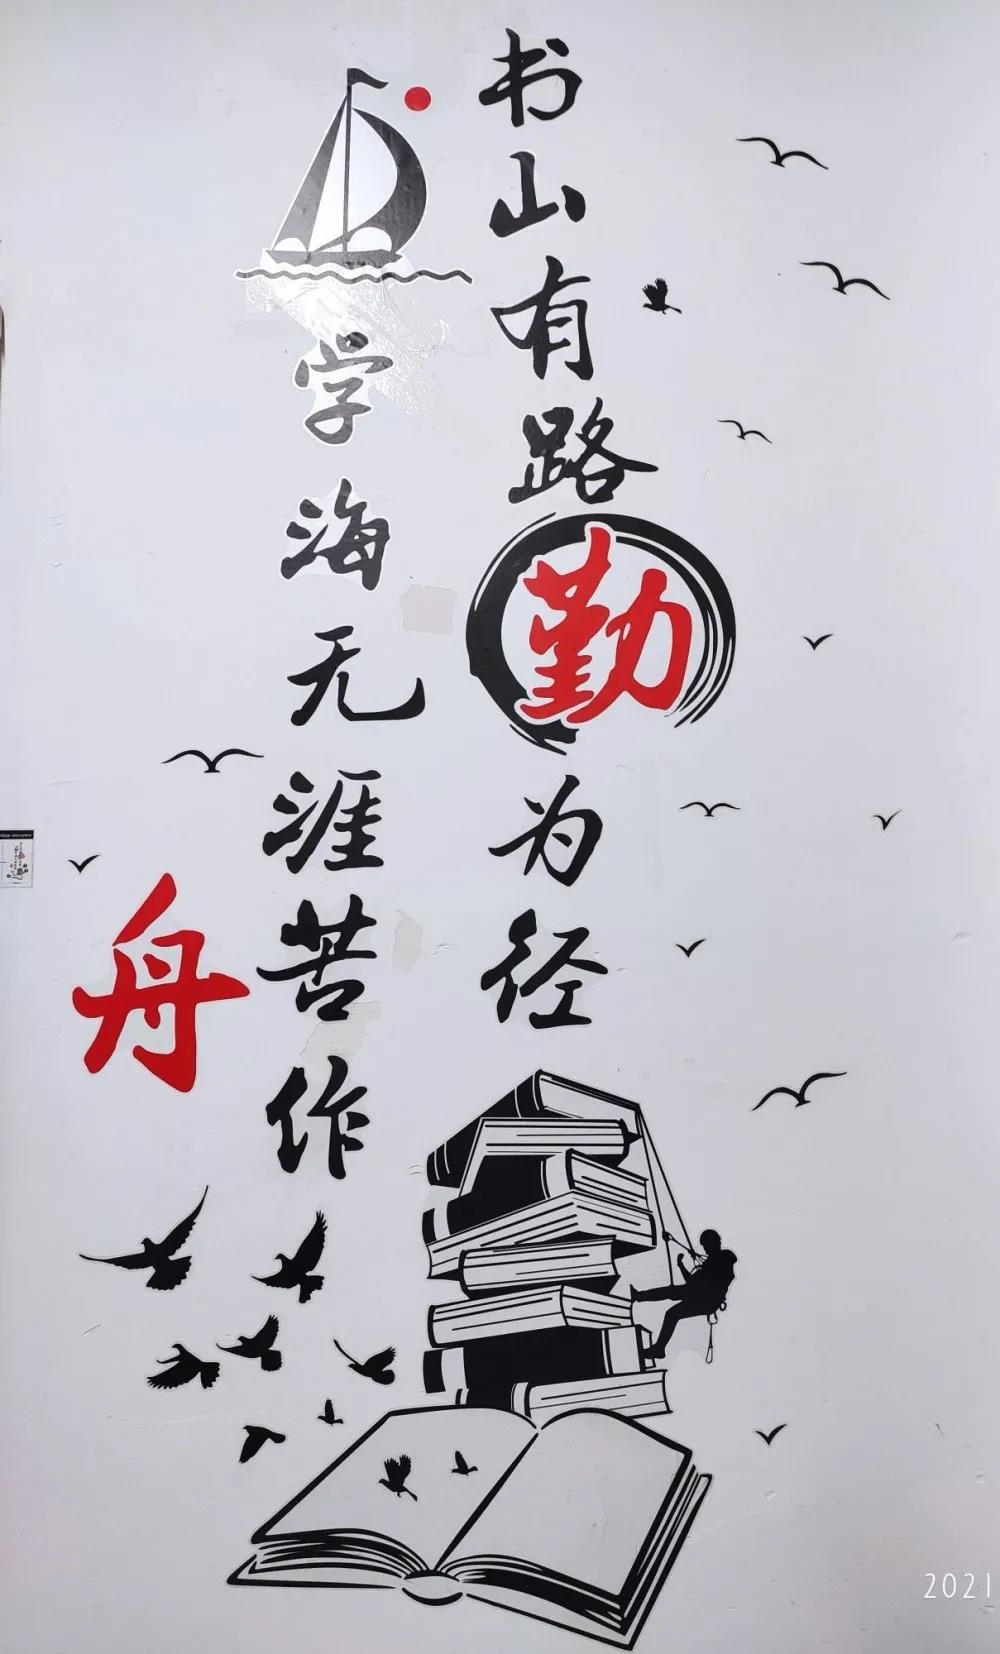 书山有路勤为径
学海无涯苦作舟
2021